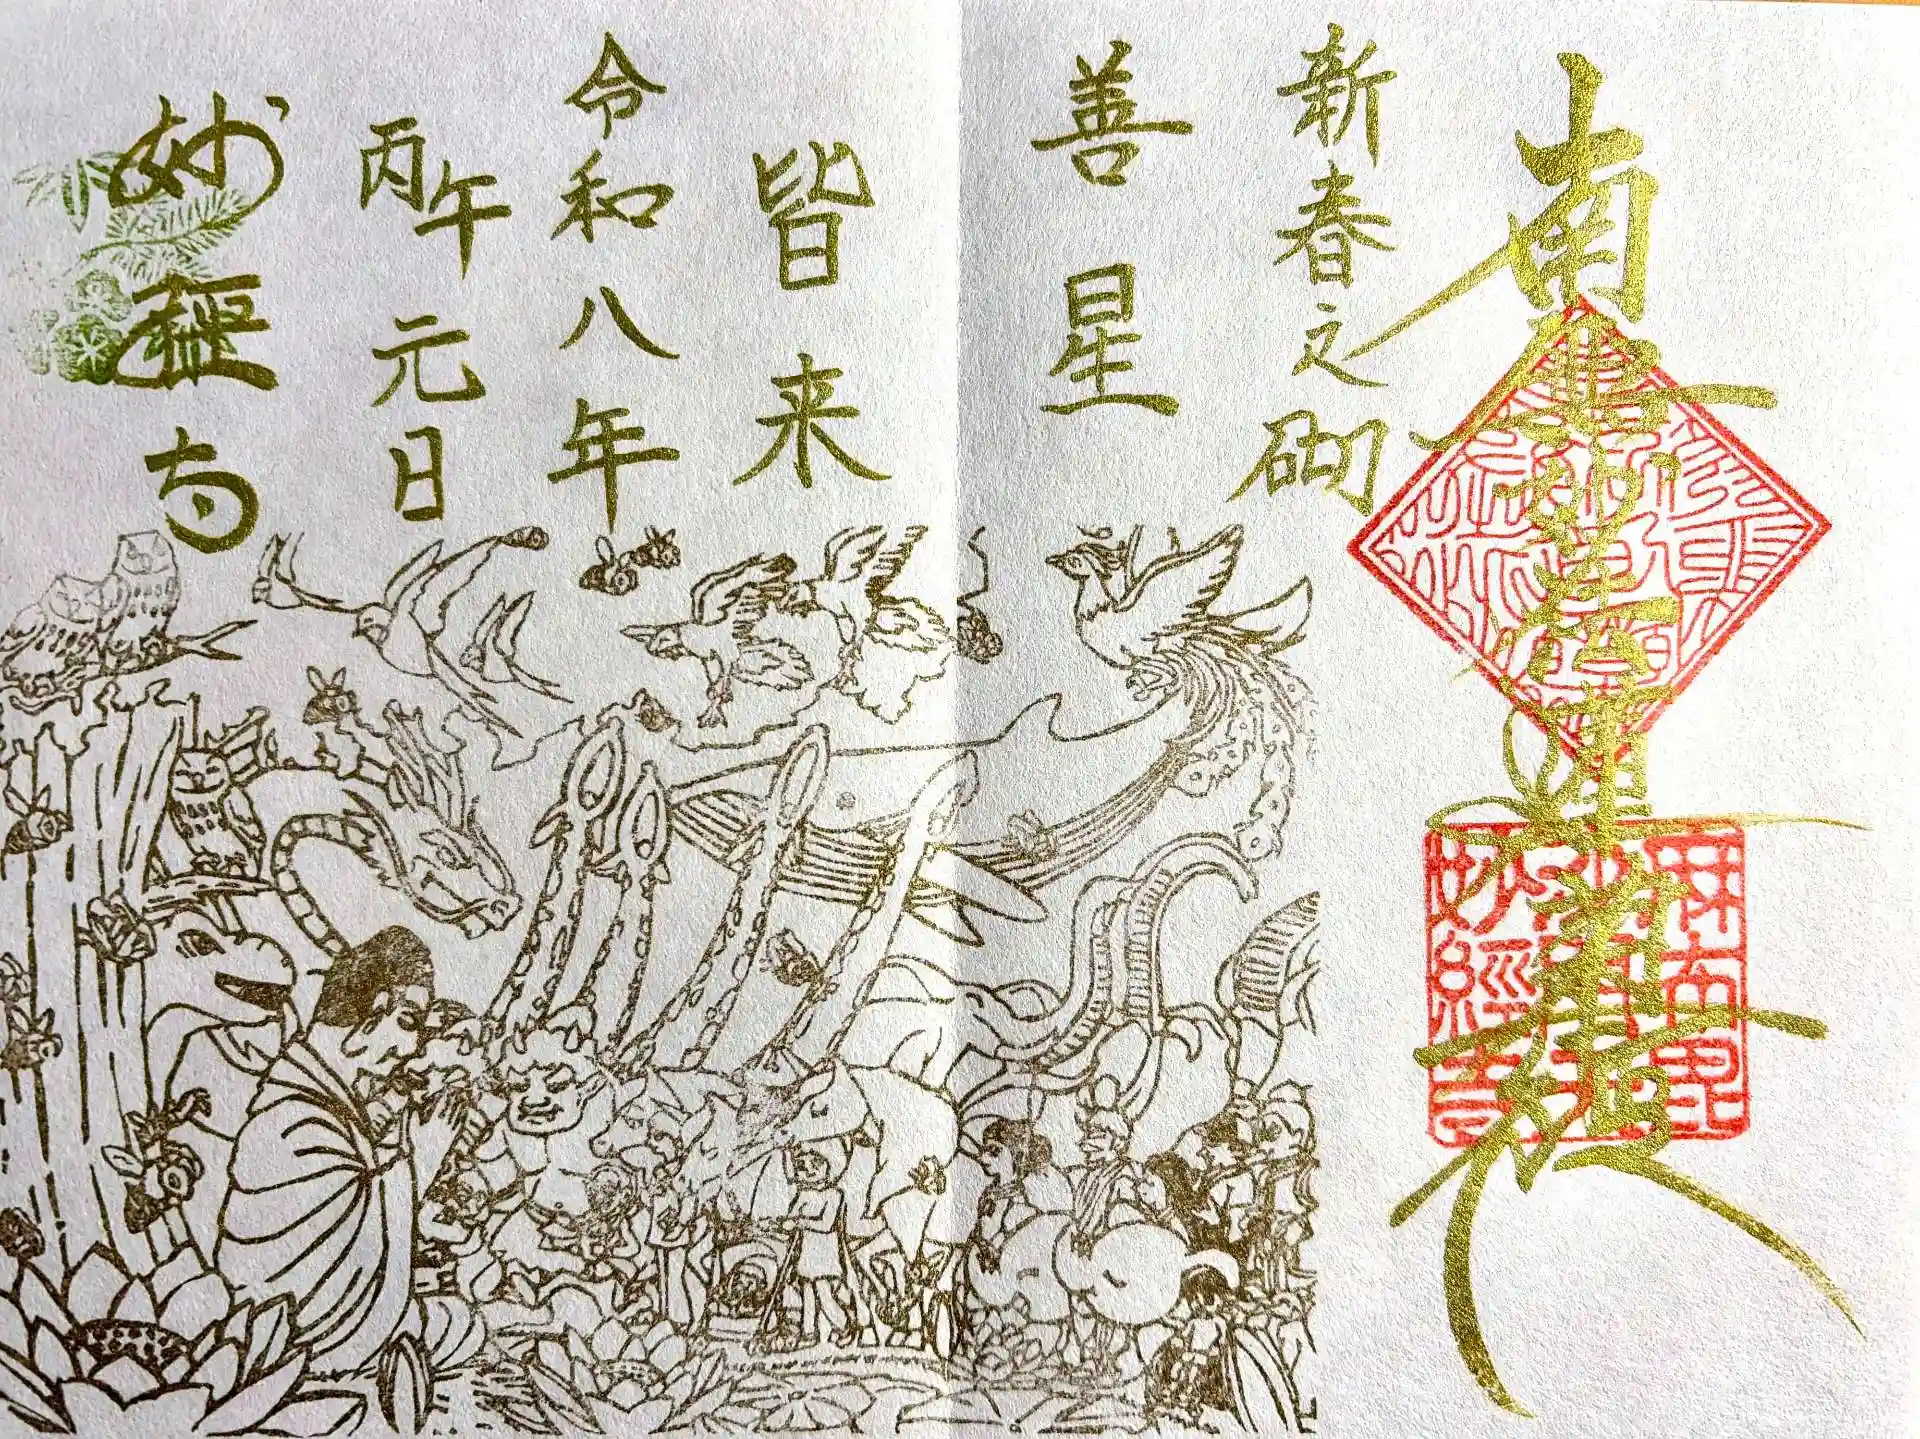 南無妙法蓮華經
新春之砌
善星
皆来
令和八年
丙午元日
妙經寺
妙經寺